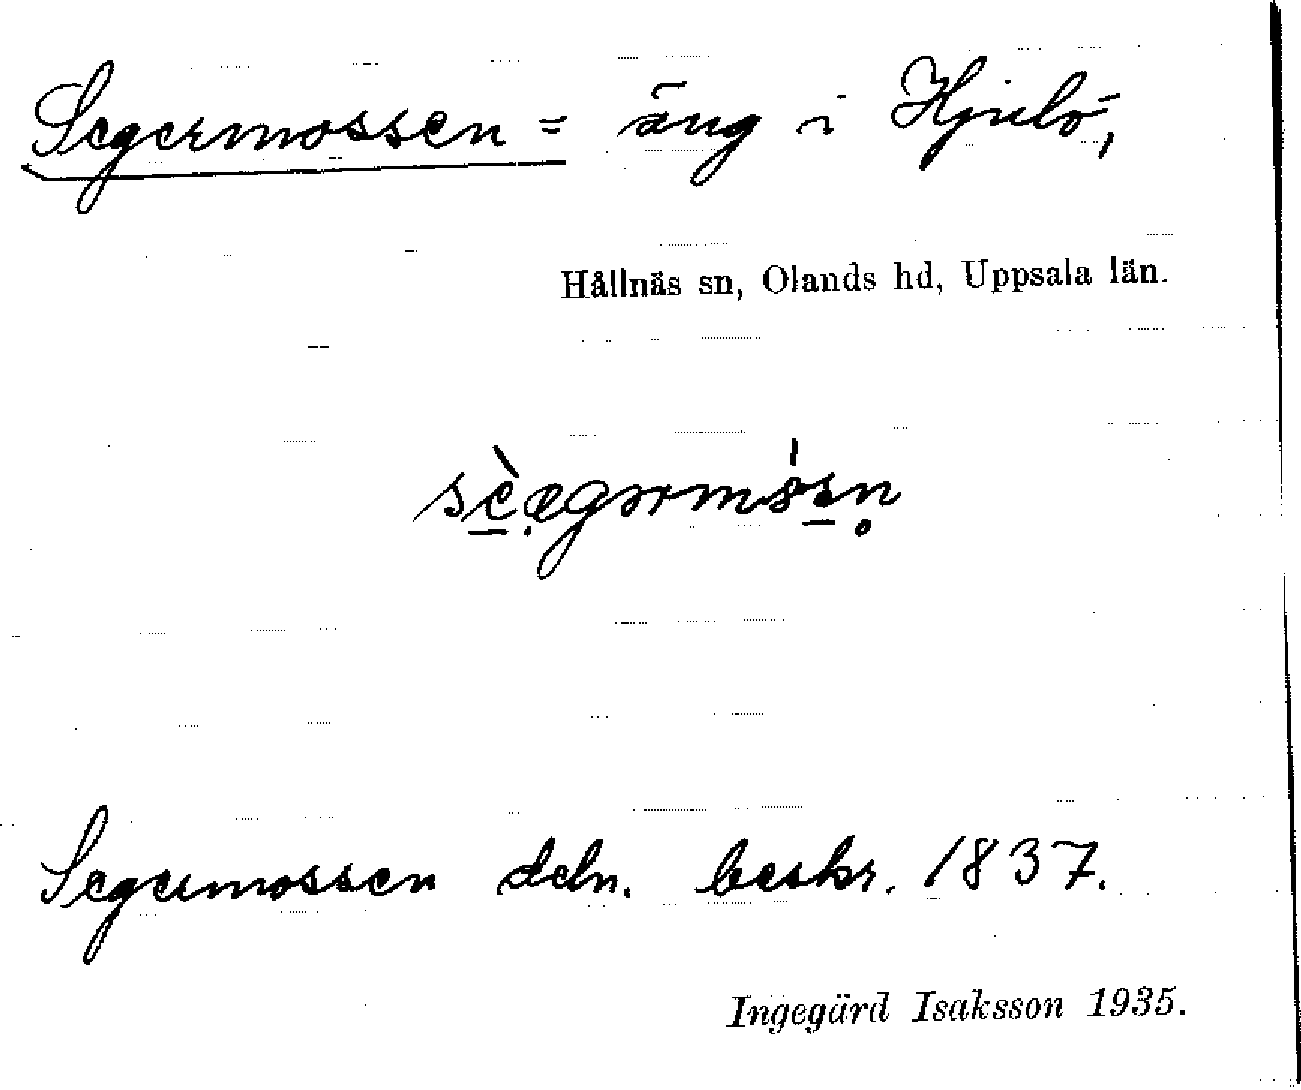 Segermossen = äng i Hjulö,
Hållnäs sn, Olands hd, Uppsala län.
Segermossen deln. beskr. 1837.
Ingegärd Isaksson 1935.